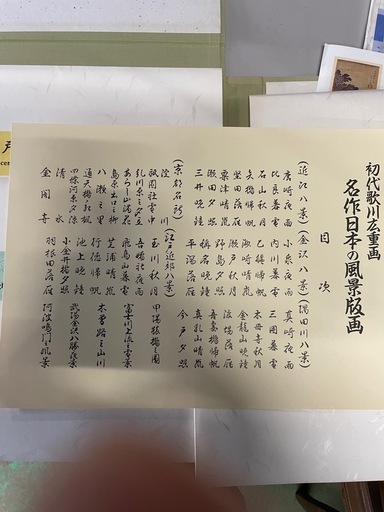 初代歌川広重画
名作日本の風景版画
目次
(近江八景)(金沢八景)(隅田川八景)
唐崎夜雨 小泉夜雨 真崎夜雨
比良暮雪 内川暮雪 三囲暮雪
石山秋月 乙艫帰帆 木母寺秋月
矢橋帰帆 洲崎晴嵐 金龍山晩鐘
堅田落雁 瀬戸秋月 落雁
粟津晴嵐 野島夕照 吾妻橋帰帆
瀬田夕照 称名晩鐘 真乳山晴嵐
三井晩鐘 平潟落雁 今戸夕照
(京都名所)(江戸近郊八景)
淀川
祇園社雪中 玉川秋月 甲陽猿橋之図
糺川原之夕立 吾嬬社夜雨 富士川上流之雪景
あらし山満花 飛鳥山暮雪
島原出口之柳 芝浦晴嵐 木曽路之山川
八瀬之里 行徳帰帆
通天橋ノ紅楓 池上晩鐘 武陽金沢八勝夜景
四條河原夕涼 小金井橋夕照
清水 羽根田落雁 阿波鳴門風景
金閣寺